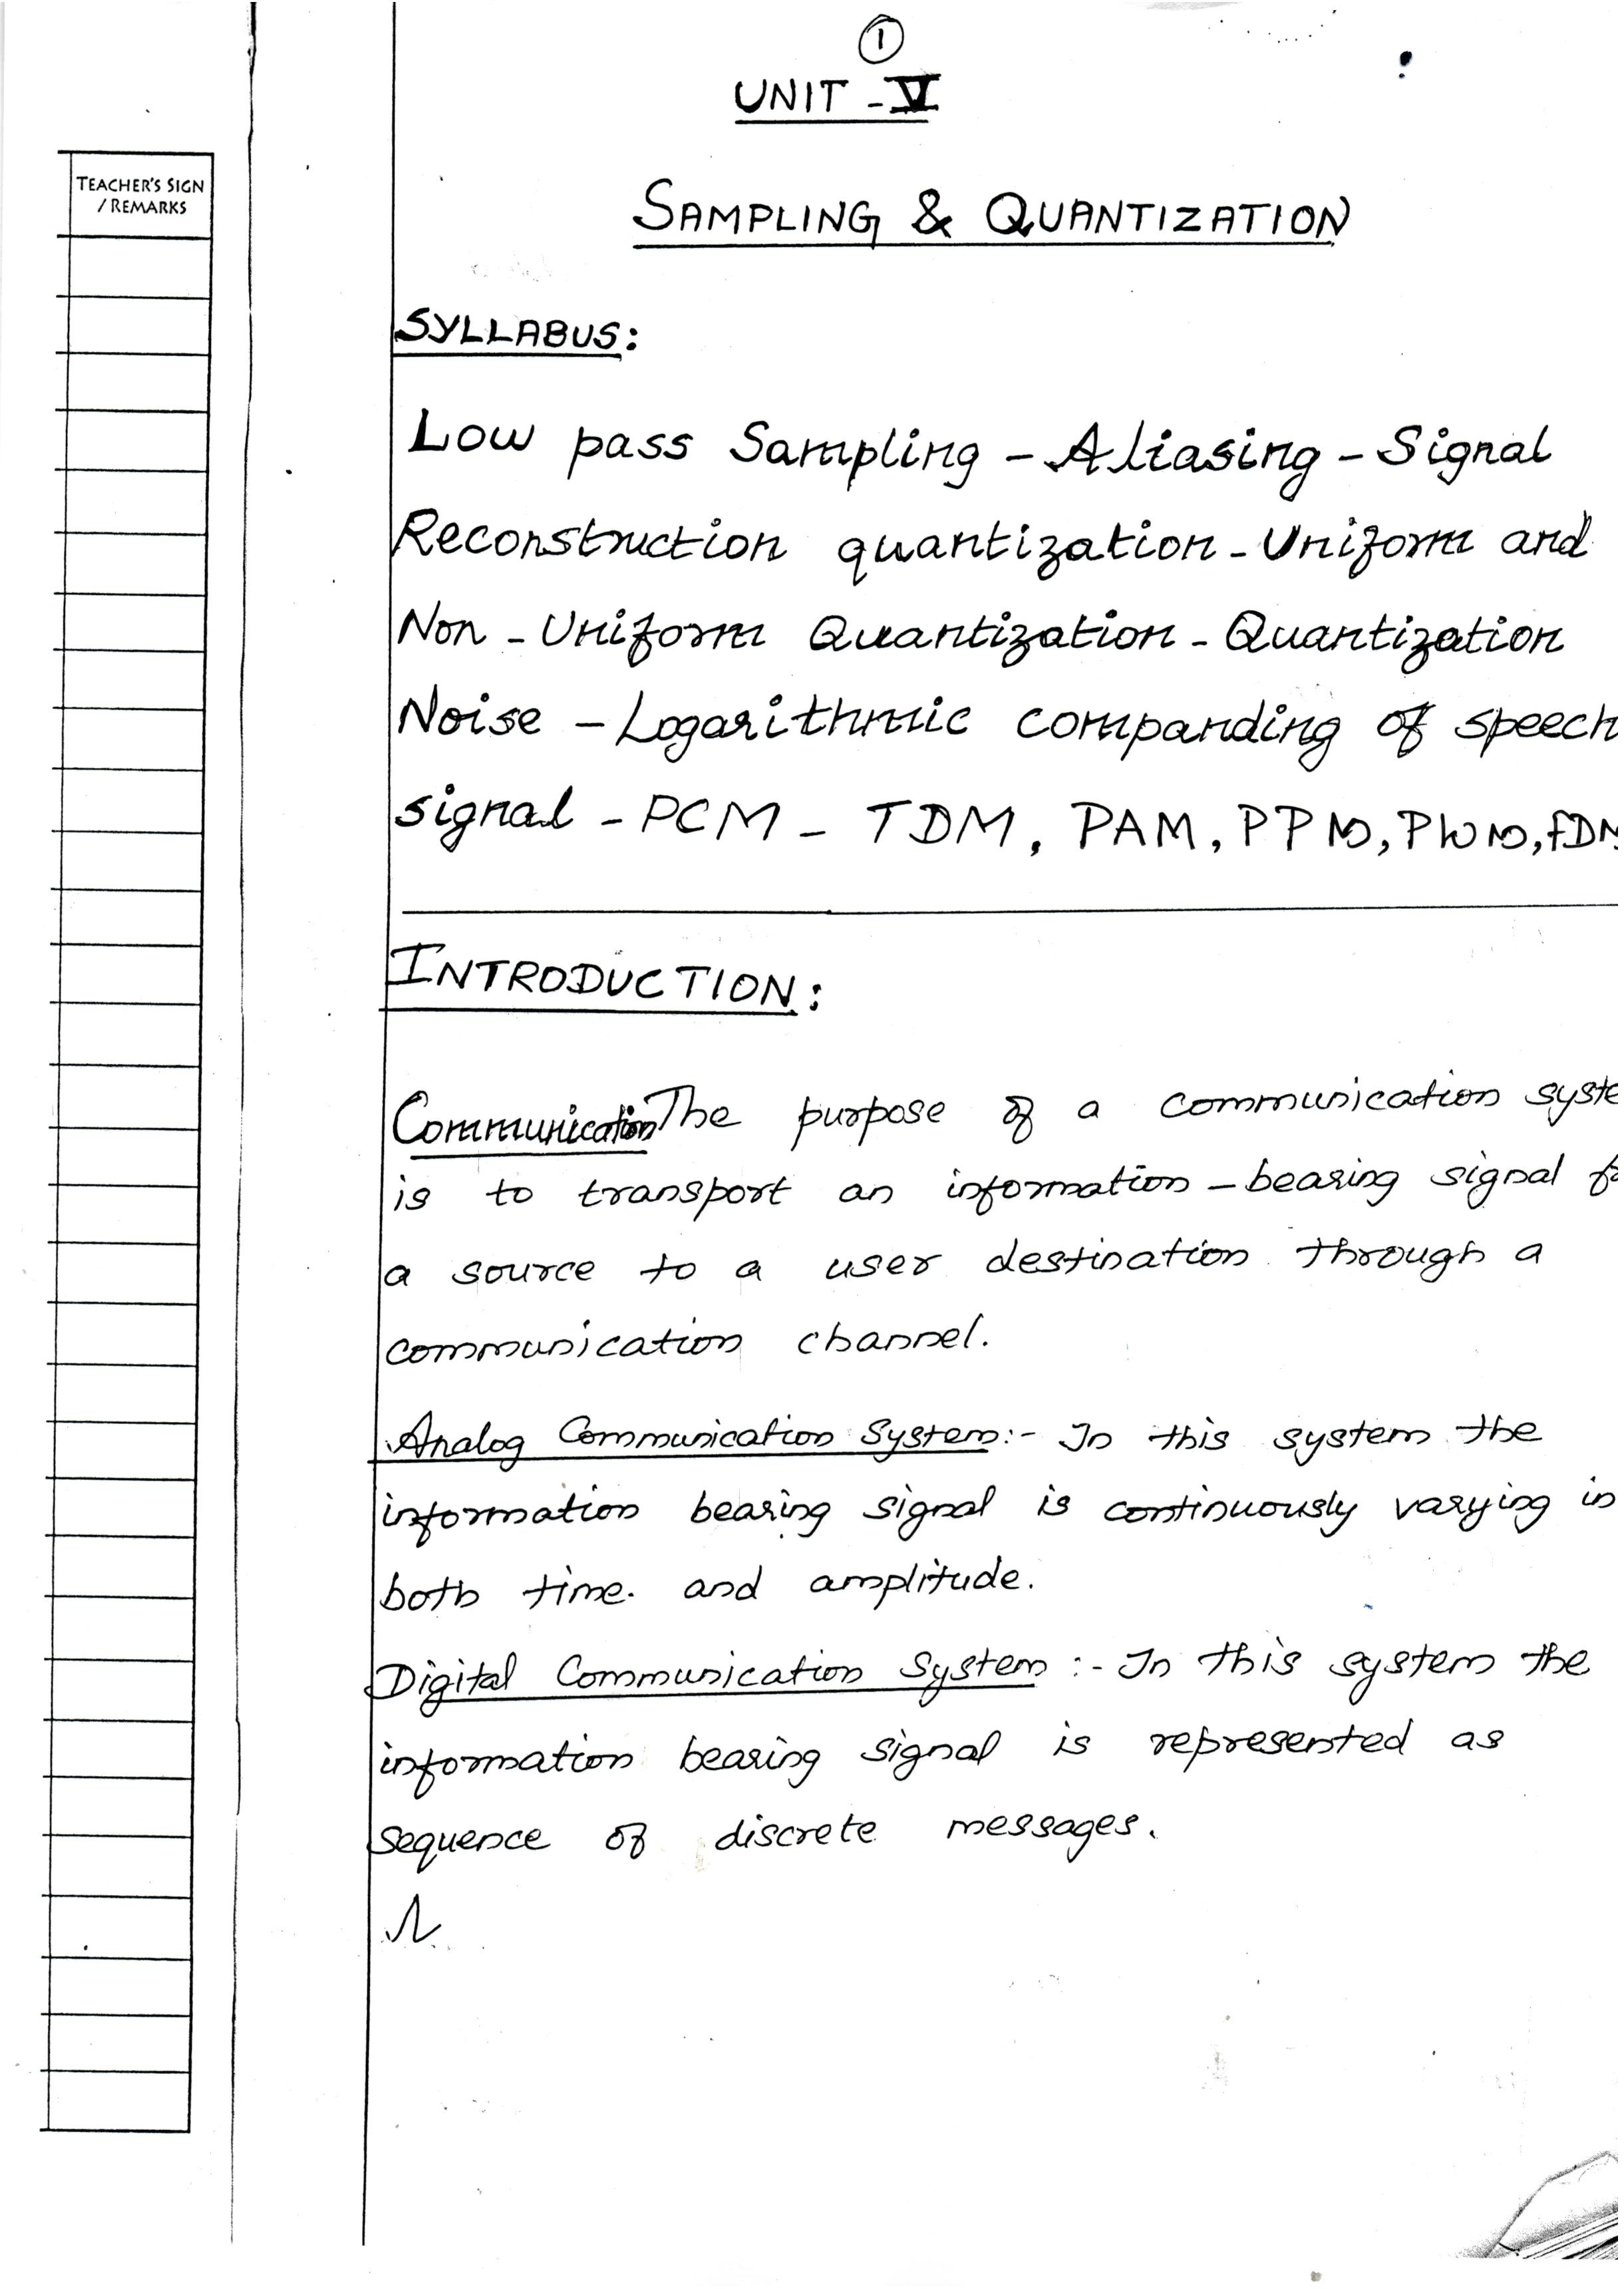 1
UNIT - V
TEACHER'S SIGN
/ REMARKS
SAMPLING & QUANTIZATION
SYLLABUS:
Low pass Sampling - Aliasing - Signal
Reconstruction quantization - Uniform and
Non - Uniform Quantization - Quantization
Noise - Logarithmic companding of speech
signal - PCM - TDM, PAM, PPM, PWM, FDM
INTRODUCTION:
Communication The purpose of a communication syste
is to transport an information - bearing signal
a source to a user destination through a
communication channel.
Analog Communication System:- In this system the
information bearing signal is continuously varying in
both time. and amplitude.
Digital Communication System :- In this system the
information bearing signal is represented as
sequence of discrete messages.